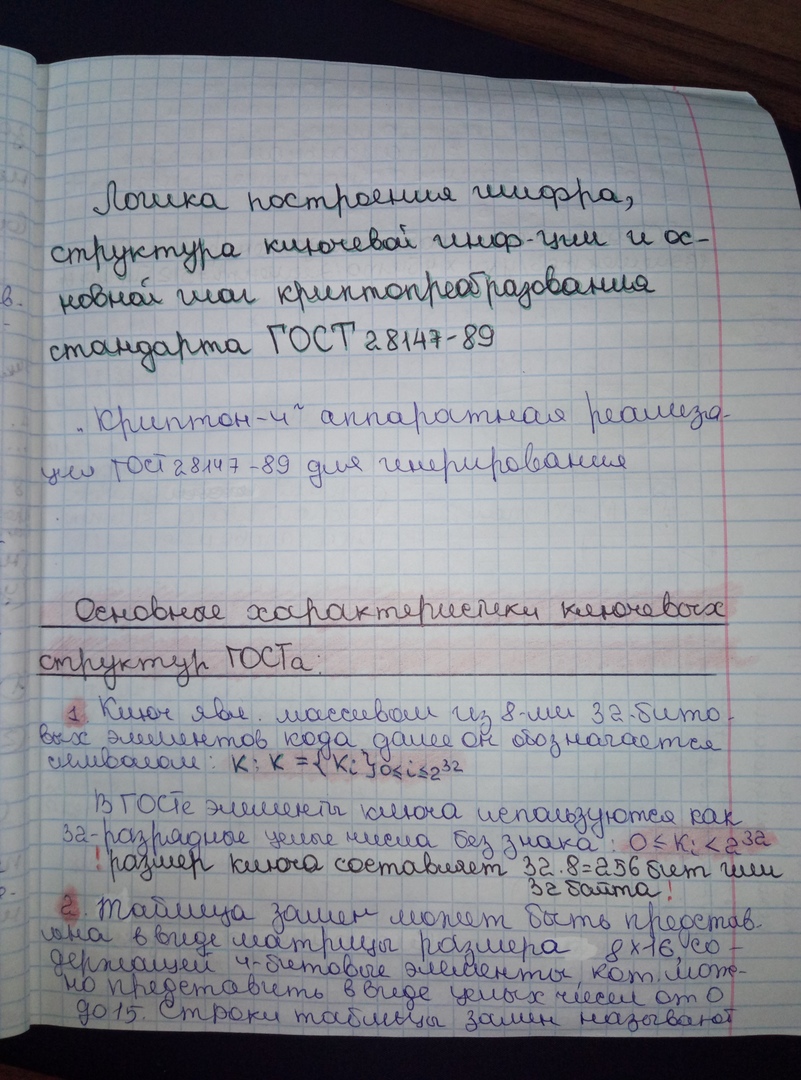 Логика построения шифра,
структура ключевой инф-ции и ос-
новной шаг криптопреобразования
стандарта ГОСТ 28147-89
„Криптон-4" аппаратная реализа-
ция ГОСТ 28147-89 для генерирования
Основные характеристики ключевых
структур ГОСТа:
1. Ключ явл. массивом из 8-ми 32-бито-
вых элементов кода далее он обозначается
символом: K: K = {Ki}0≤i≤2³²
В ГОСТе элементы ключа используются как
32-разрядные целые числа без знака: 0 ≤ Ki < 2³²
! размер ключа составляет 32·8=256 бит или
32 байта!
2. Таблица замен может быть представ-
лена в виде матрицы размера 8×16, со-
держащей 4-битовые элементы, кот. мож-
но представить в виде целых чисел от 0
до 15. Строки таблицы замен называют